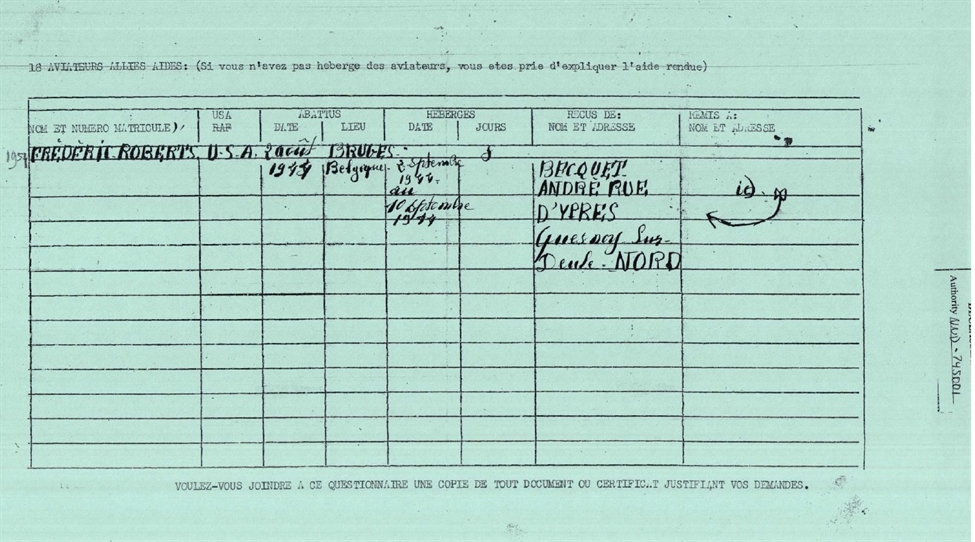 18 AVIATEURS ALLIES AIDES: (Si vous n'avez pas heberge des aviateurs, vous etes prie d'expliquer l'aide rendue)
USA ABATTUS HEBERGES RECUS DE: REMIS A:
NOM ET NUMERO MATRICULE) RAF DATE LIEU DATE JOURS NOM ET ADRESSE NOM ET ADRESSE
FRÉDÉRIC ROBERTS U.S.A. 2 août BRUGES.
1944 Belgique 2 septembre BECQUET
1944. ANDRÉ RUE id.
au
10 septembre D'YPRES
1944
Quesnoy Sur-
Deule. NORD
Authority NND - 745001
VOULEZ-VOUS JOINDRE A CE QUESTIONNAIRE UNE COPIE DE TOUT DOCUMENT OU CERTIFICAT JUSTIFIANT VOS DEMANDES.